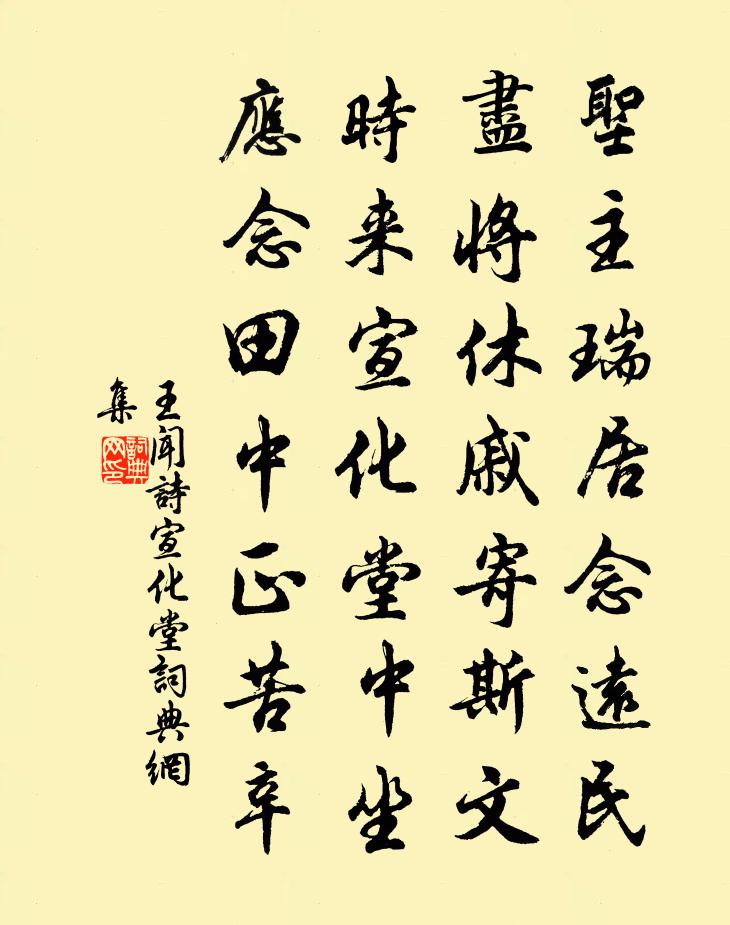 聖主瑞居念遠民
盡將休戚寄斯文
時来宣化堂中坐
應念田中正苦辛
王聞詩宣化堂詞典網
集
詞典網印